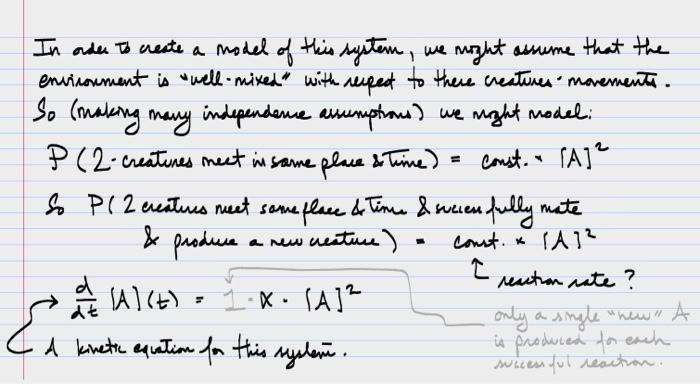 In order to create a model of this system, we might assume that the
environment is "well-mixed" with respect to these creatures' movements.
So (making many independence assumptions) we might model:
P(2-creatures meet in same place & time) = const. × [A]²
So P(2 creatures meet same place & time & successfully mate
& produce a new creature) = const. × [A]²
↑ reaction rate?
d/dt [A](t) = 1 · K · [A]²
only a single "new" A
is produced for each
successful reaction.
A kinetic equation for this system.